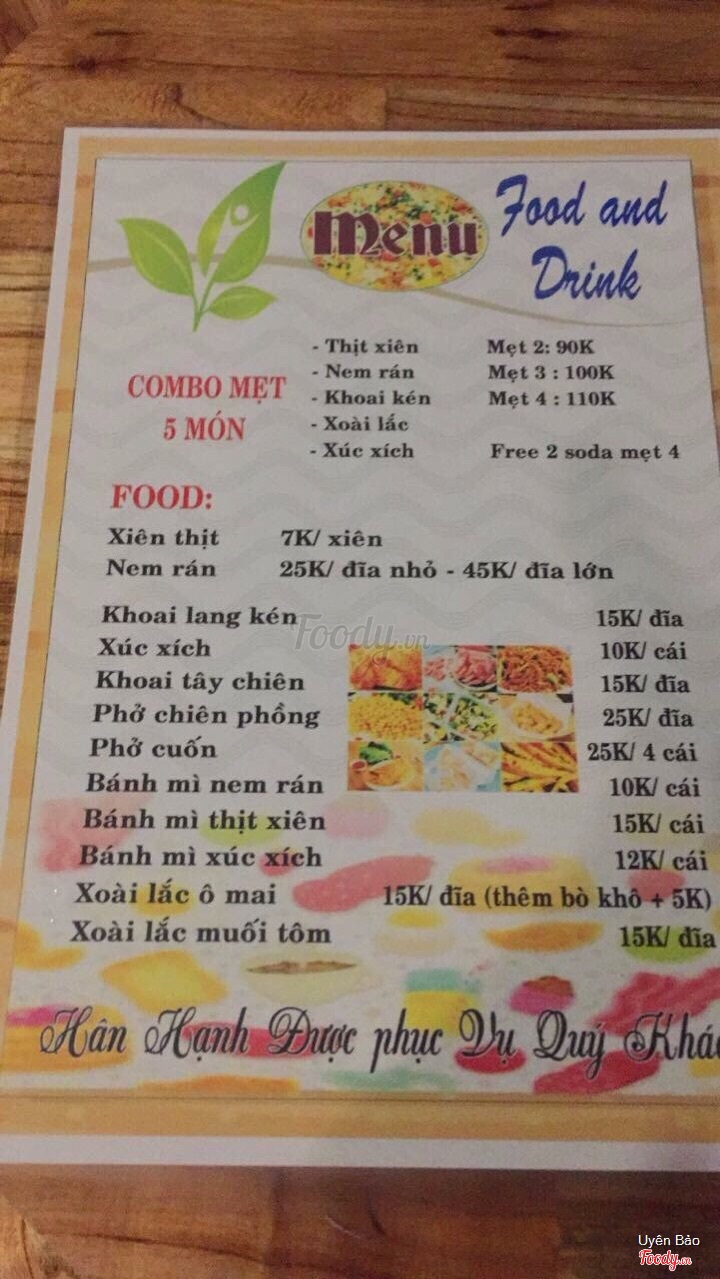 Menu
Food and
Drink
COMBO MẸT
5 MÓN
- Thịt xiên Mẹt 2: 90K
- Nem rán Mẹt 3 : 100K
- Khoai kén Mẹt 4 : 110K
- Xoài lắc
- Xúc xích Free 2 soda mẹt 4
FOOD:
Xiên thịt 7K/ xiên
Nem rán 25K/ đĩa nhỏ - 45K/ đĩa lớn
Khoai lang kén 15K/ đĩa
Foody.vn
Xúc xích 10K/ cái
Khoai tây chiên 15K/ đĩa
Phở chiên phồng 25K/ đĩa
Phở cuốn 25K/ 4 cái
Bánh mì nem rán 10K/ cái
Bánh mì thịt xiên 15K/ cái
Bánh mì xúc xích 12K/ cái
Xoài lắc ô mai 15K/ đĩa (thêm bò khô + 5K)
Xoài lắc muối tôm 15K/ đĩa
Hân Hạnh Được phục Vụ Quý Khác
Uyên Bảo
Foody.vn